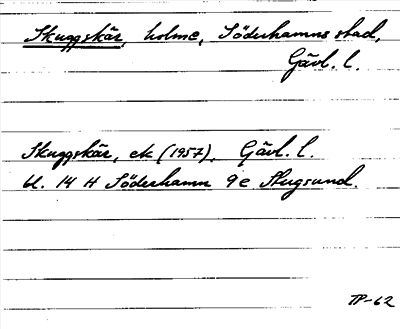 Skuggskär, holme, Söderhamns stad,
Gävl. l.
Skuggskär, ek (1957), Gävl. l.
bl. 14 H Söderhamn 9 e Stugsund.
TP-62